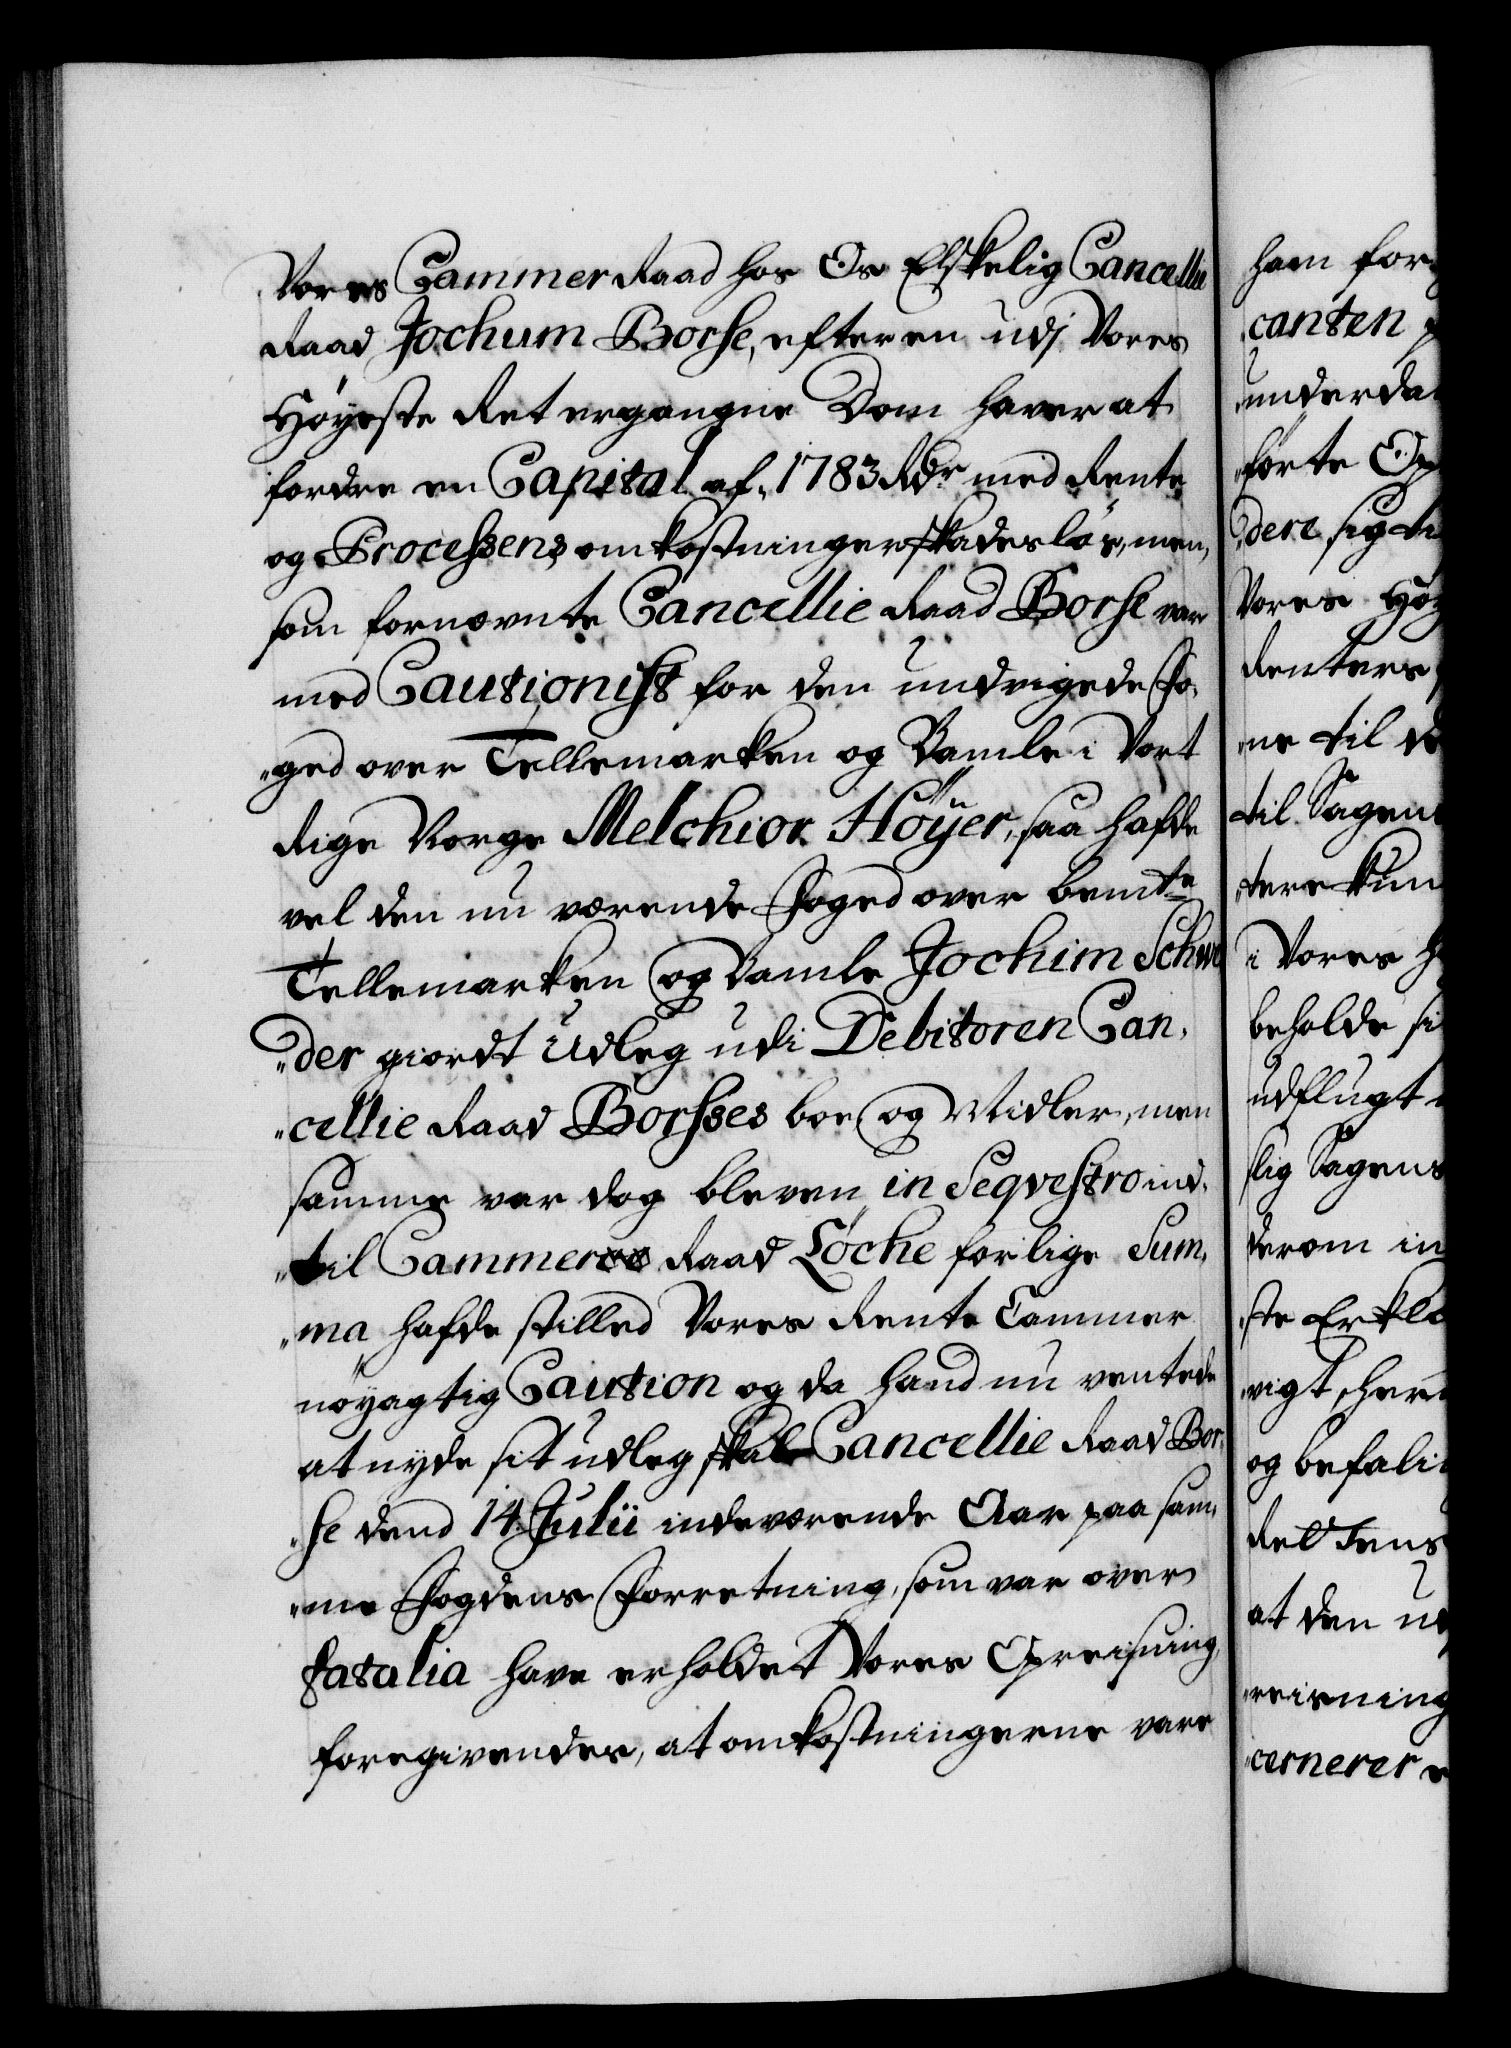 Vores Cammer Raad hos Os Elskelig Cancellie
Raad Jochum Borse, efter en udj Vores
Høyeste Ret ergangne Dom haver at
fordre en Capital af 1783 Rdr med Rente
og Processens omkostninger skadesløs, men
som fornevnte Cancellie Raad Borse var
med Cautionist for den undvigede Fo-
ged over Tellemarken og Bamle i Vort
Rige Norge Melchior Høÿer, saa hafde
vel den nu værende Foged over bemte
Tellemarken og Bamle Jochim Schwe
der giordt Udleg udi Debitoren Can-
cellie Raad Borsses boe og Midler, men
samme var dog bleven in Seqvestro ind-
til Cammer Raad Löche for lige Sum-
ma hafde stilled Vores Rente Cammer
nøyagtig Caution og da hand nu ventede
at nyde sit udleg skal Cancellie Raad Bor-
se dend 14 Julii indeværende Aar paa sam-
me Fogdens Forretning, som var over
fatalia have erholdet Vores Opreisning,
foregivendes, at omkostningerne vare
ham for
canten
underda
førte Op
dere sig ti
Vores Høy
Renters
ne til d
til Sagens
tere kun
i Vores H
beholde si
udflugt
lig Sagens
derom in
ste Erklæ
vigt, her
og befali
Rettens
at den u
reisning
cernerer